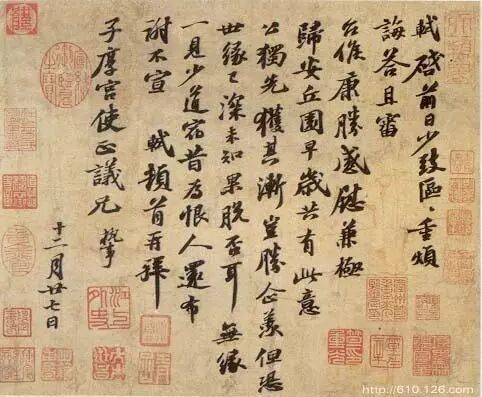 軾啓前日少致區〻重煩
誨答且審
台候康勝感慰兼極
歸安丘園早歲共有此意
公獨先獲其漸豈勝企羨但恐
世緣已深未知果脫否耳無緣
一見少道宿昔爲恨人還布
謝不宣 軾頓首再拜
子厚宮使正議兄 執事
十二月廿七日
http://610.126.com/